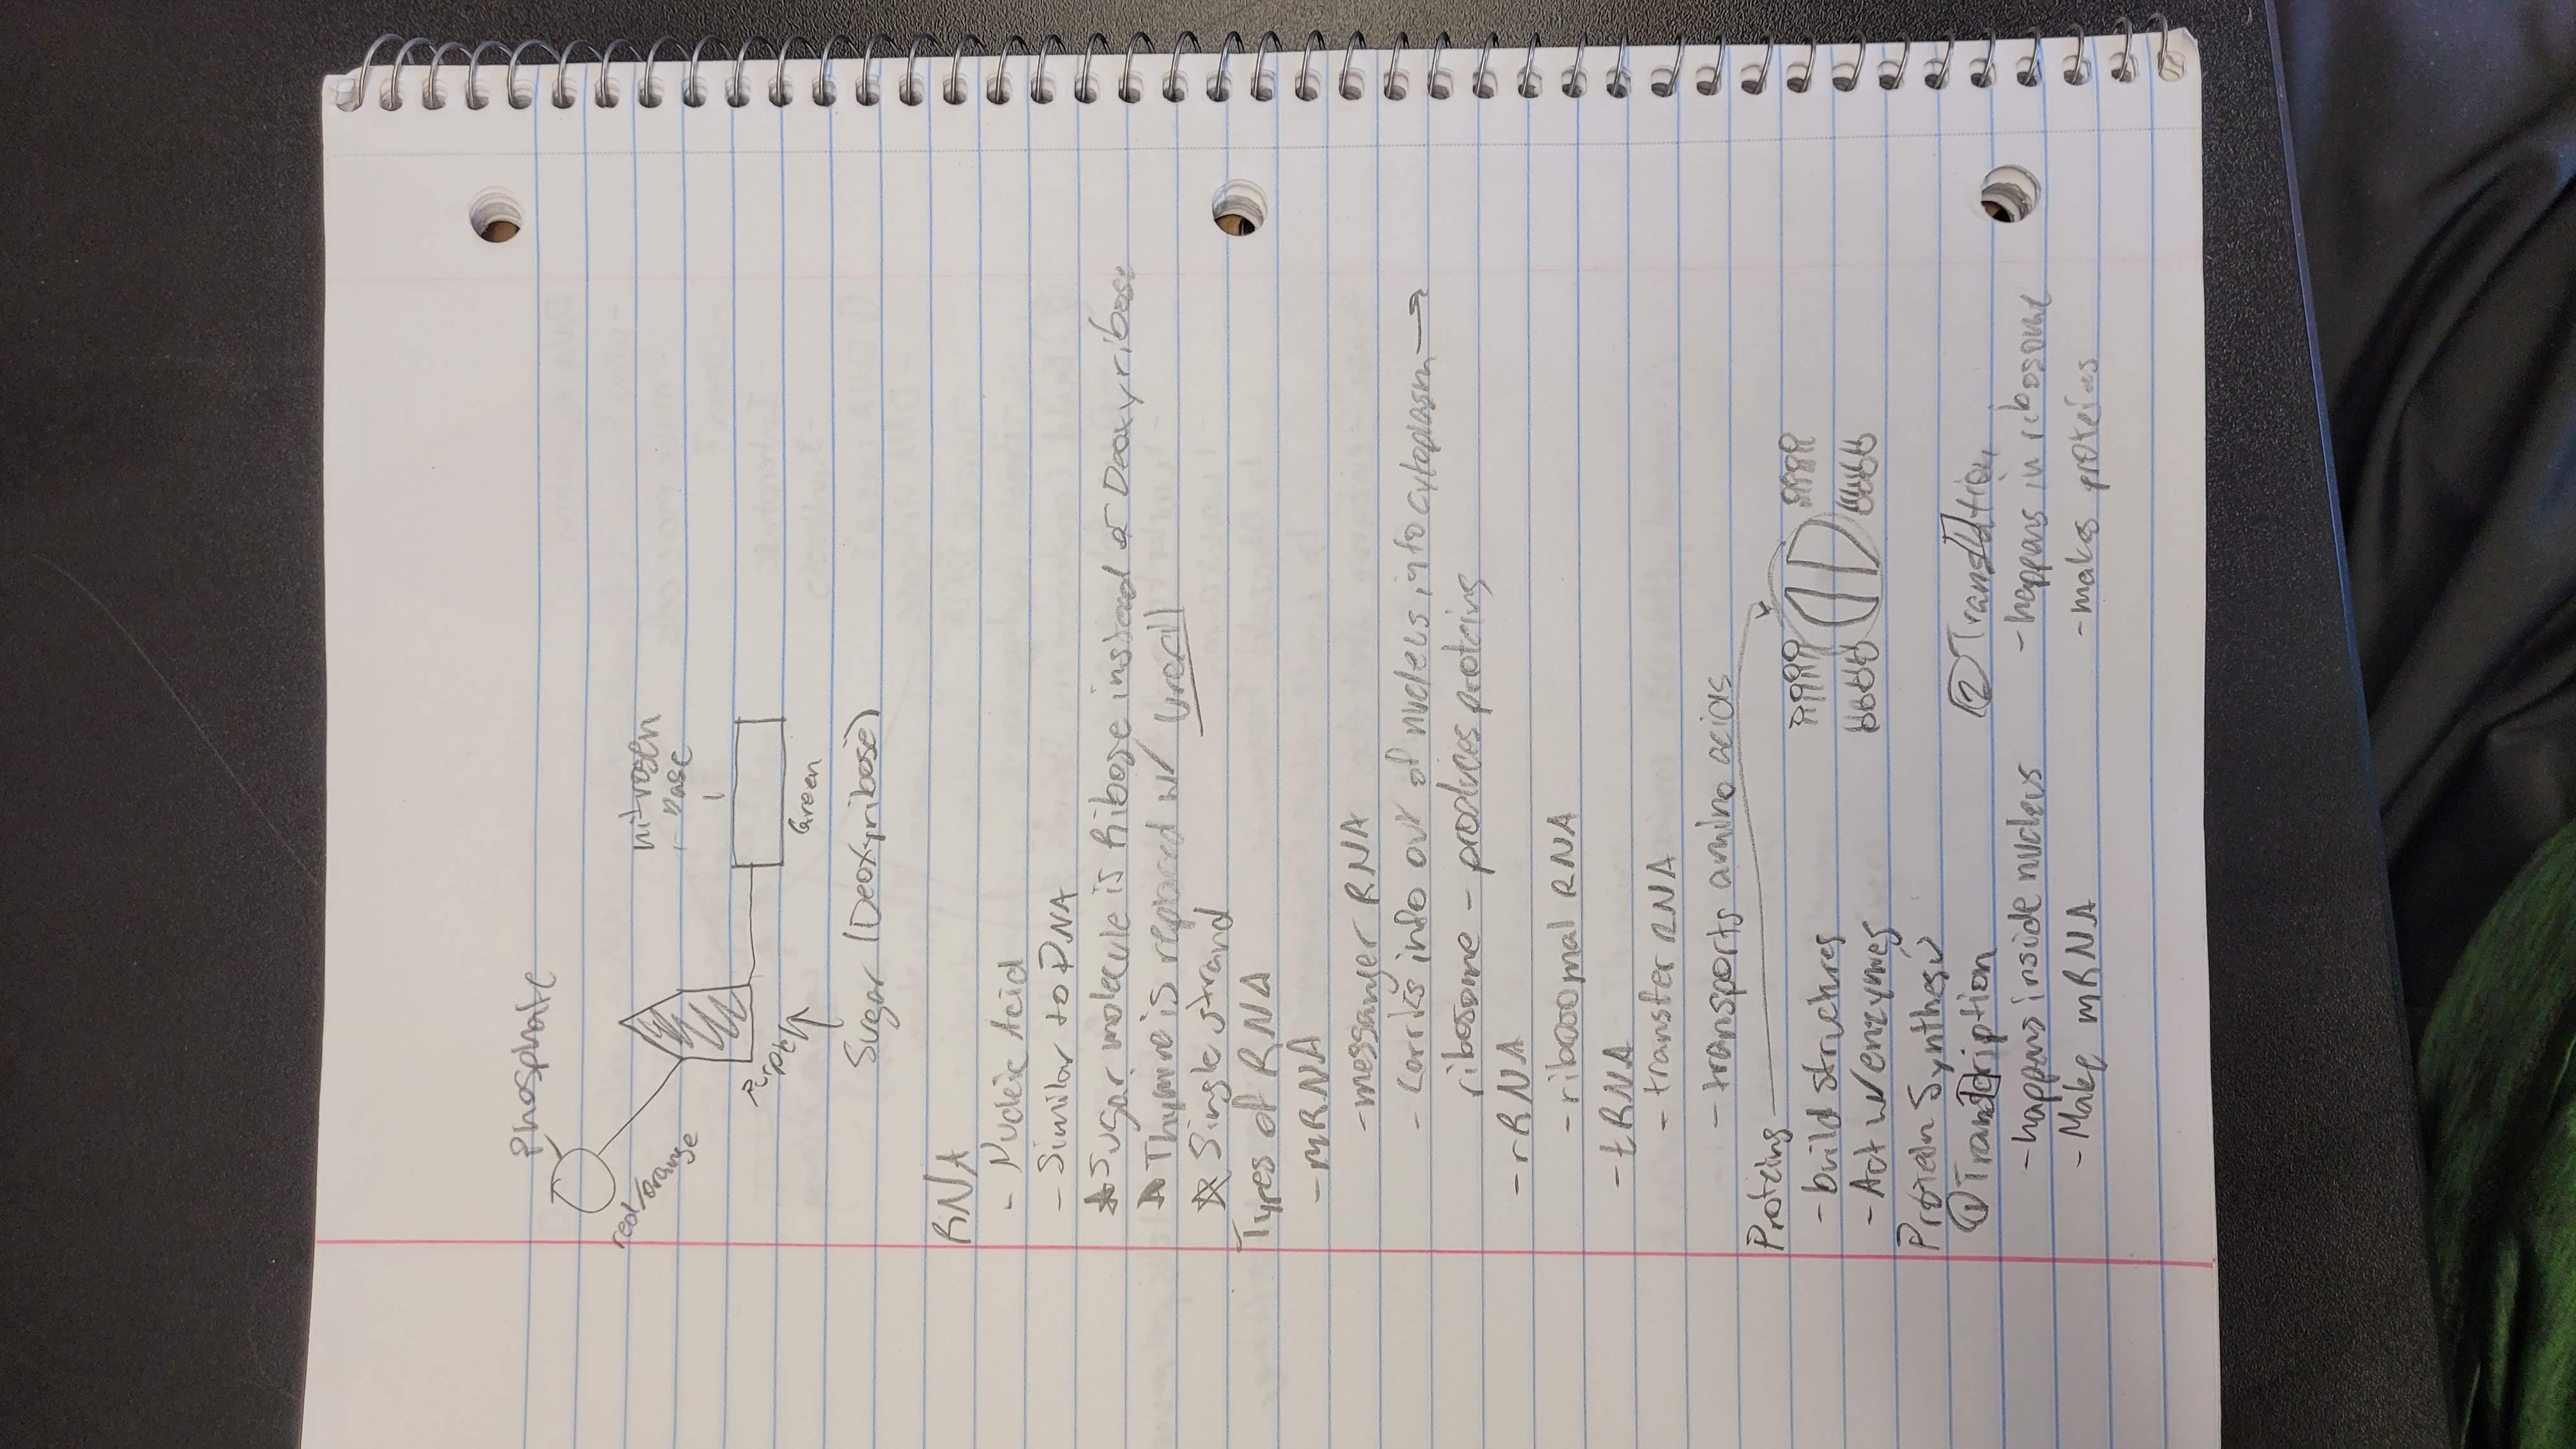 Phosphate
nitrogen
base
red/orange
Green
Sugar (Deoxyribose)
RNA
- Nucleic Acid
- Similar to DNA
Sugar molecule is Ribose instead of Deoxyribose
Thymine is replaced w/ Uracil
Single strand
Types of RNA
- mRNA
- messanger RNA
- Carries info out of nucleus, into cytoplasm →
ribosome - produces proteins
- rRNA
- ribosomal RNA
- tRNA
- transfer RNA
- transports amino acids
Proteins
- build structures
- Act w/ enzymes
Protein Synthesis
① Transcription ② Translation
- happens inside nucleus - happens in ribosome
- Make mRNA - makes proteins